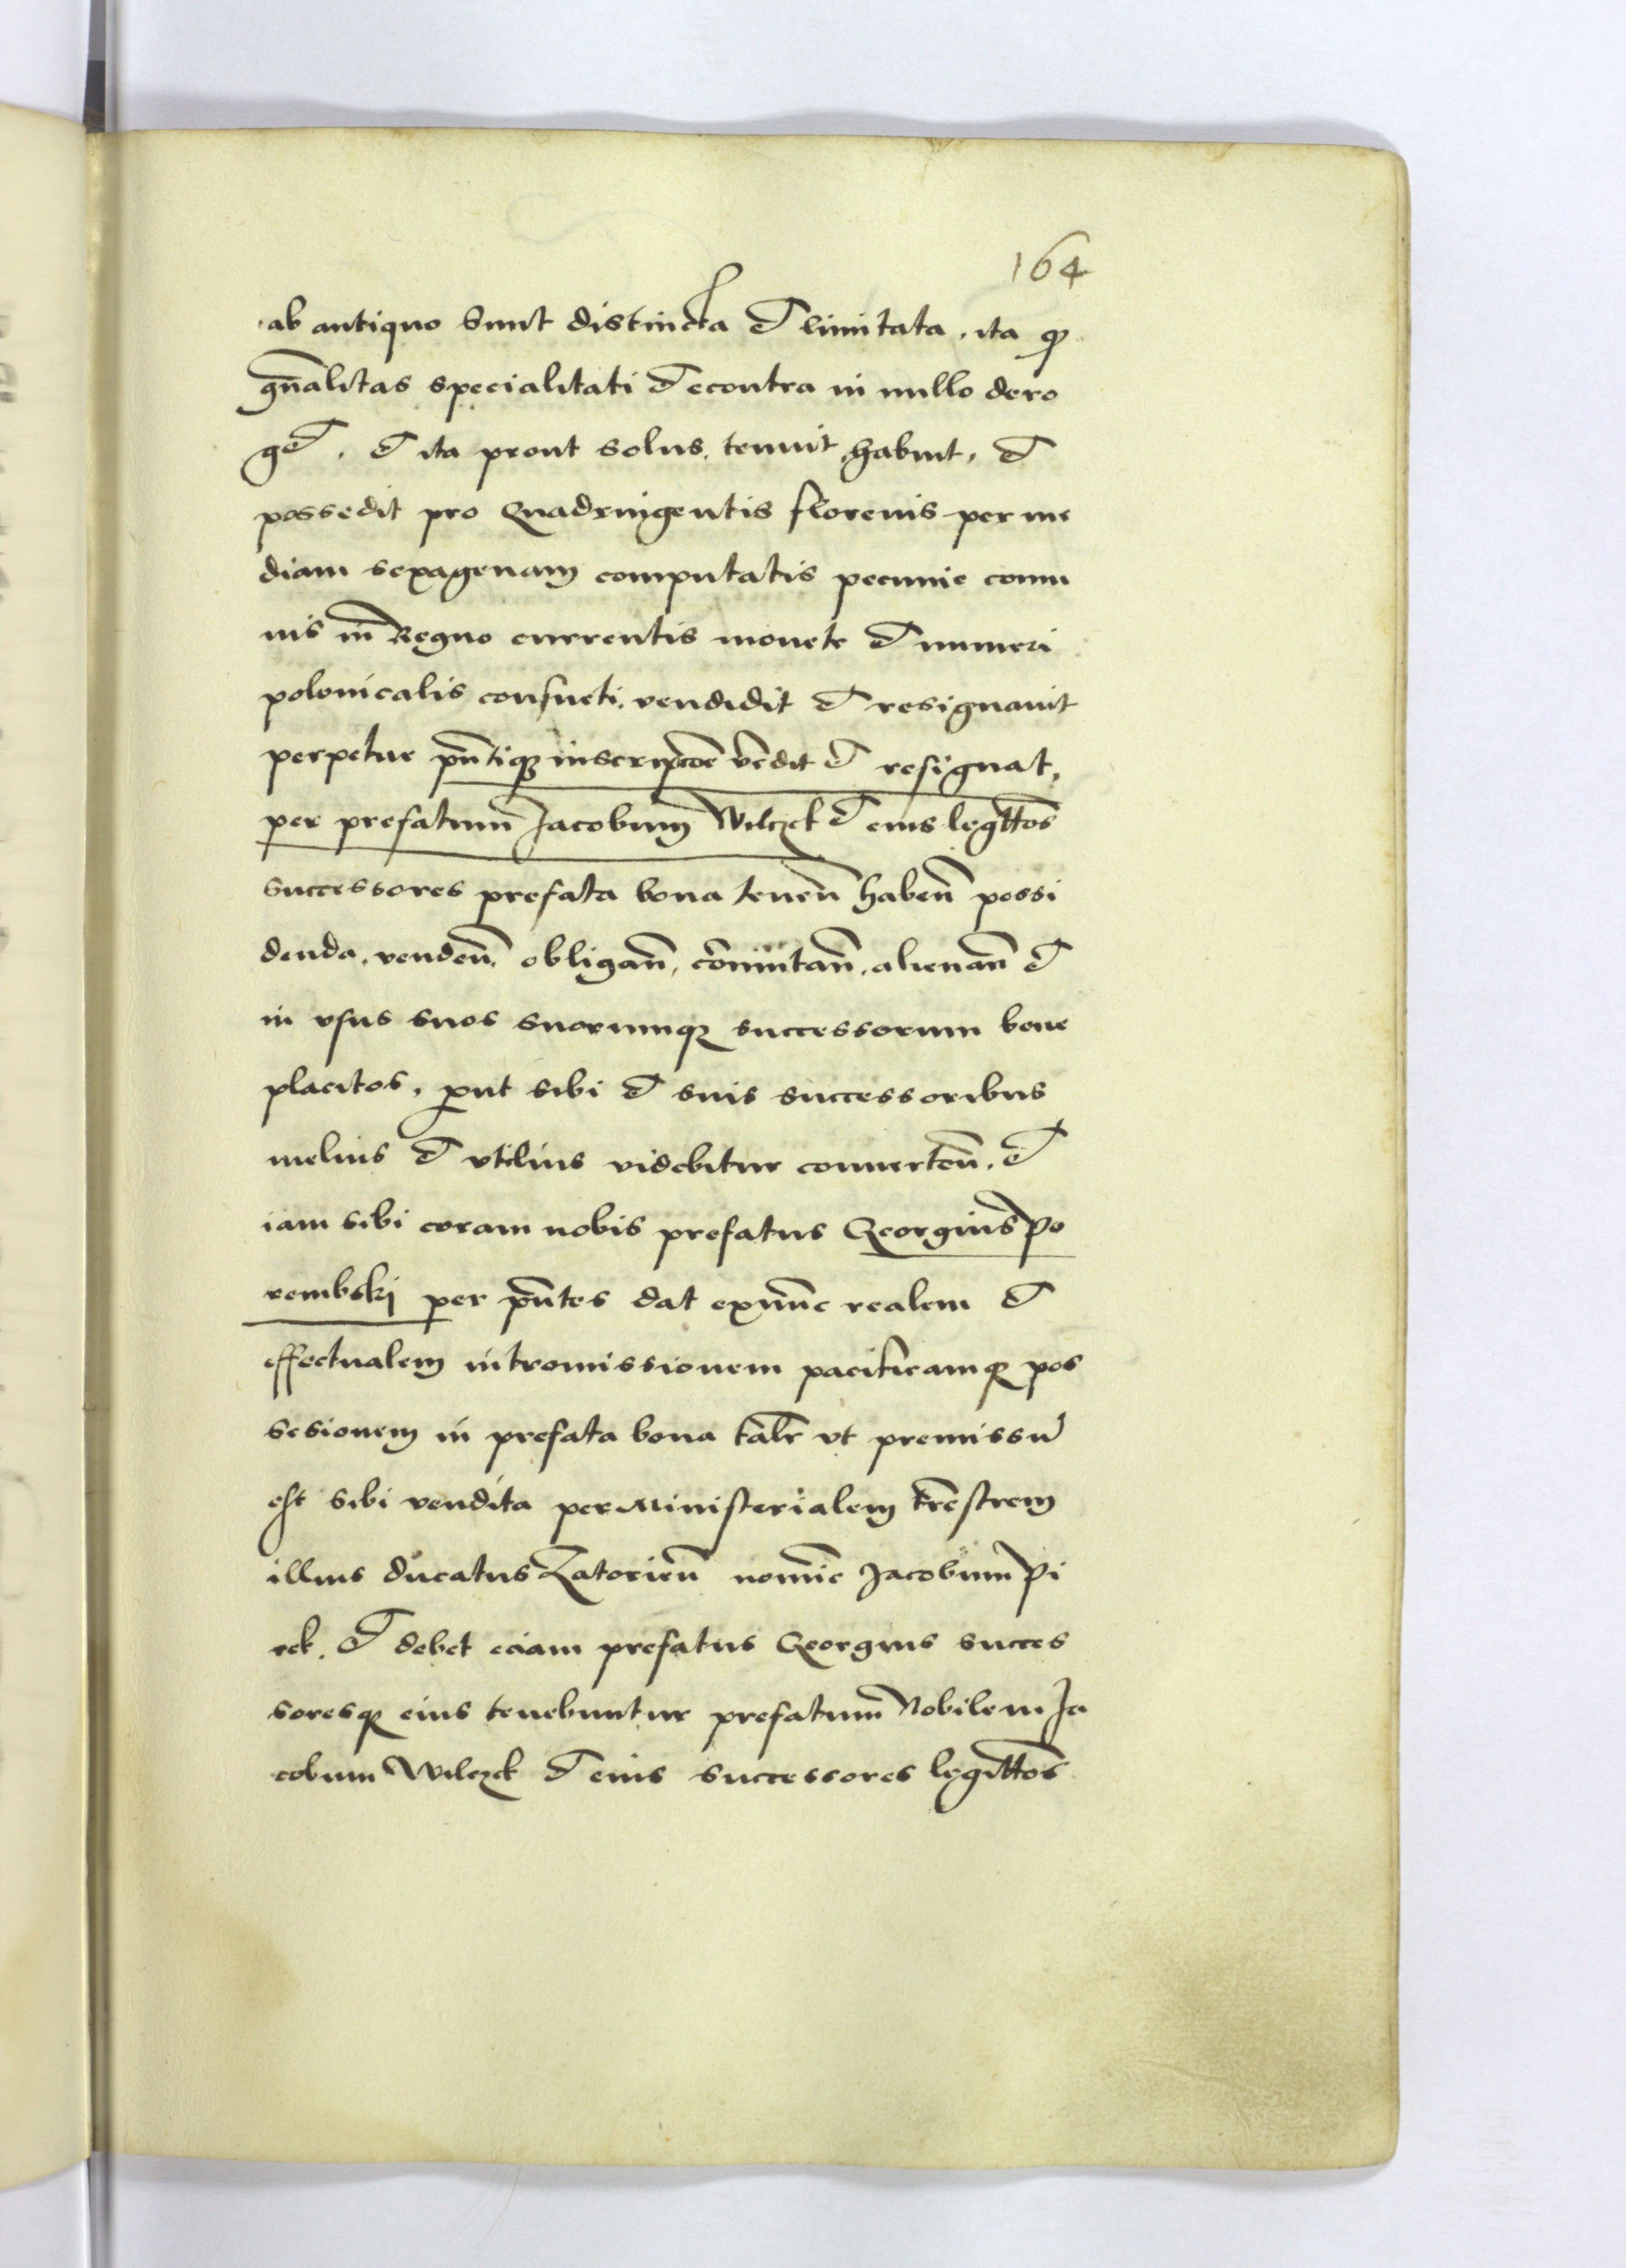 164
ab antiquo sunt distincta et limitata, ita qȝ
gn̄alitas specialitati et econtra in nullo dero
get. et ita prout solus, tenuit, habuit, et
possedit pro Quadringentis florenis per me
diam sexagenam computatis pecunie comu
nis in Regno currentis monete et numeri
polonicalis consueti, vendidit et resignauit
perpetue pn̄tiqȝ inscripcōe vēdit et resignat,
per prefatum Jacobum Wilczek et eius legittōs
successores prefata bona tenen̄ haben̄ possi
denda, venden̄, obligan̄, cōmutan̄, alienan̄ et
in vsus suos suorumqȝ successorum bene
placitos, prout sibi et suis successoribus
melius et vtilius videbitur conuerten̄. et
iam sibi coram nobis prefatus Georgius Po
rembskj per pn̄tes dat exnunc realem et
effectualem intromissionem pacificamqȝ pos
sesionem in prefata bona talr̄ vt premissū
est sibi vendita per Ministerialem trēstrem
illius ducatus Zatorien̄ nomīe Jacobum Pi
rek. et debet eciam prefatus Georgius succes
soresqȝ eius tenebuntur prefatum Nobilem Ja
cobum Wilczek et eius successores legittōs